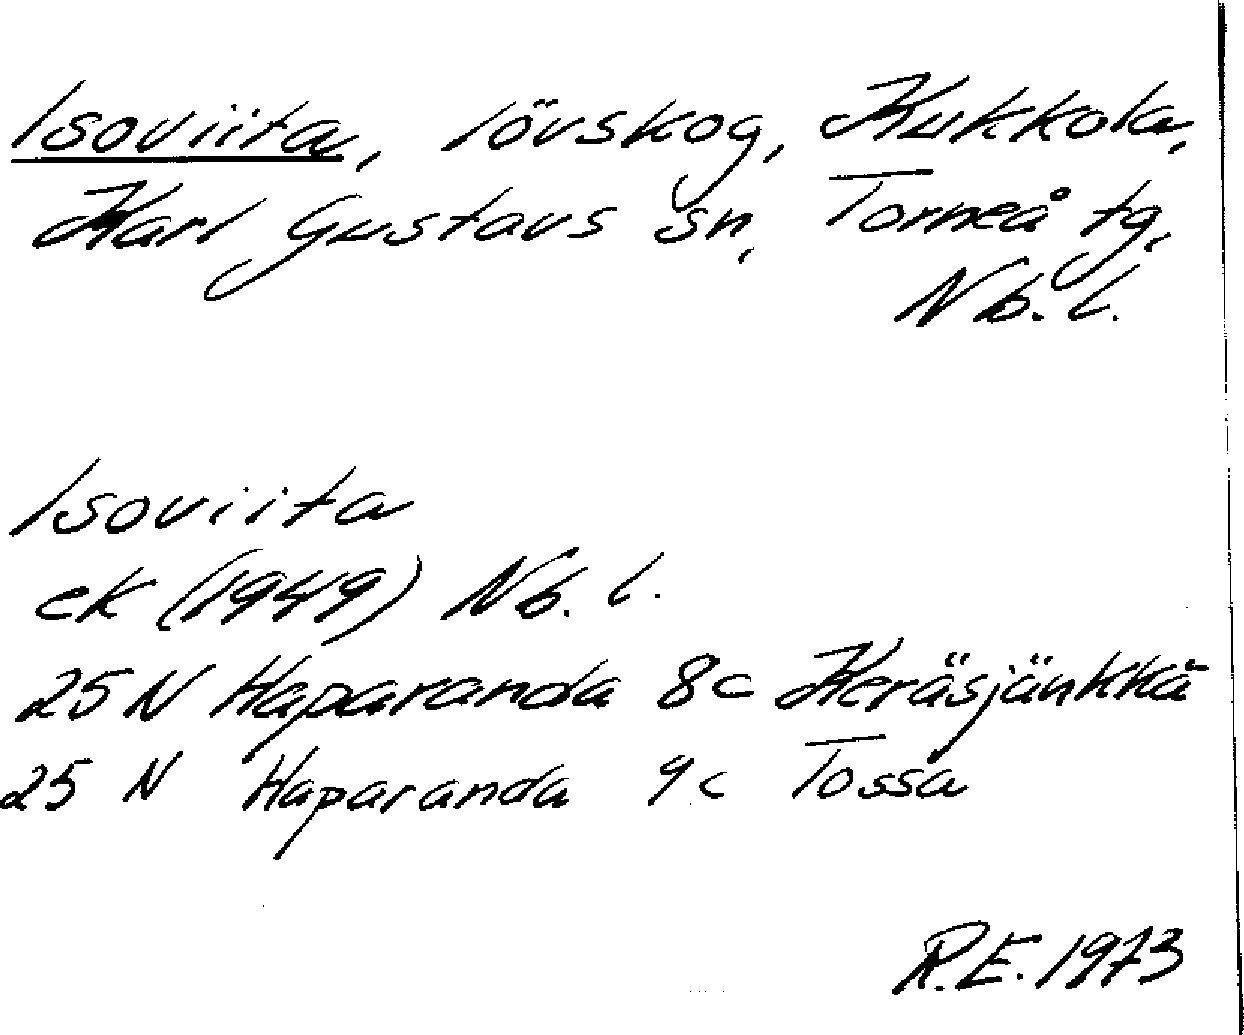 Isoviita, lövskog, Kukkola,
Karl Gustavs sn, Torneå tg,
Nb. l.
Isoviita
ek (1949) Nb. l.
25 N Haparanda 8c Keräsjänkkä
25 N Haparanda 9c Tossa
R.E. 1973